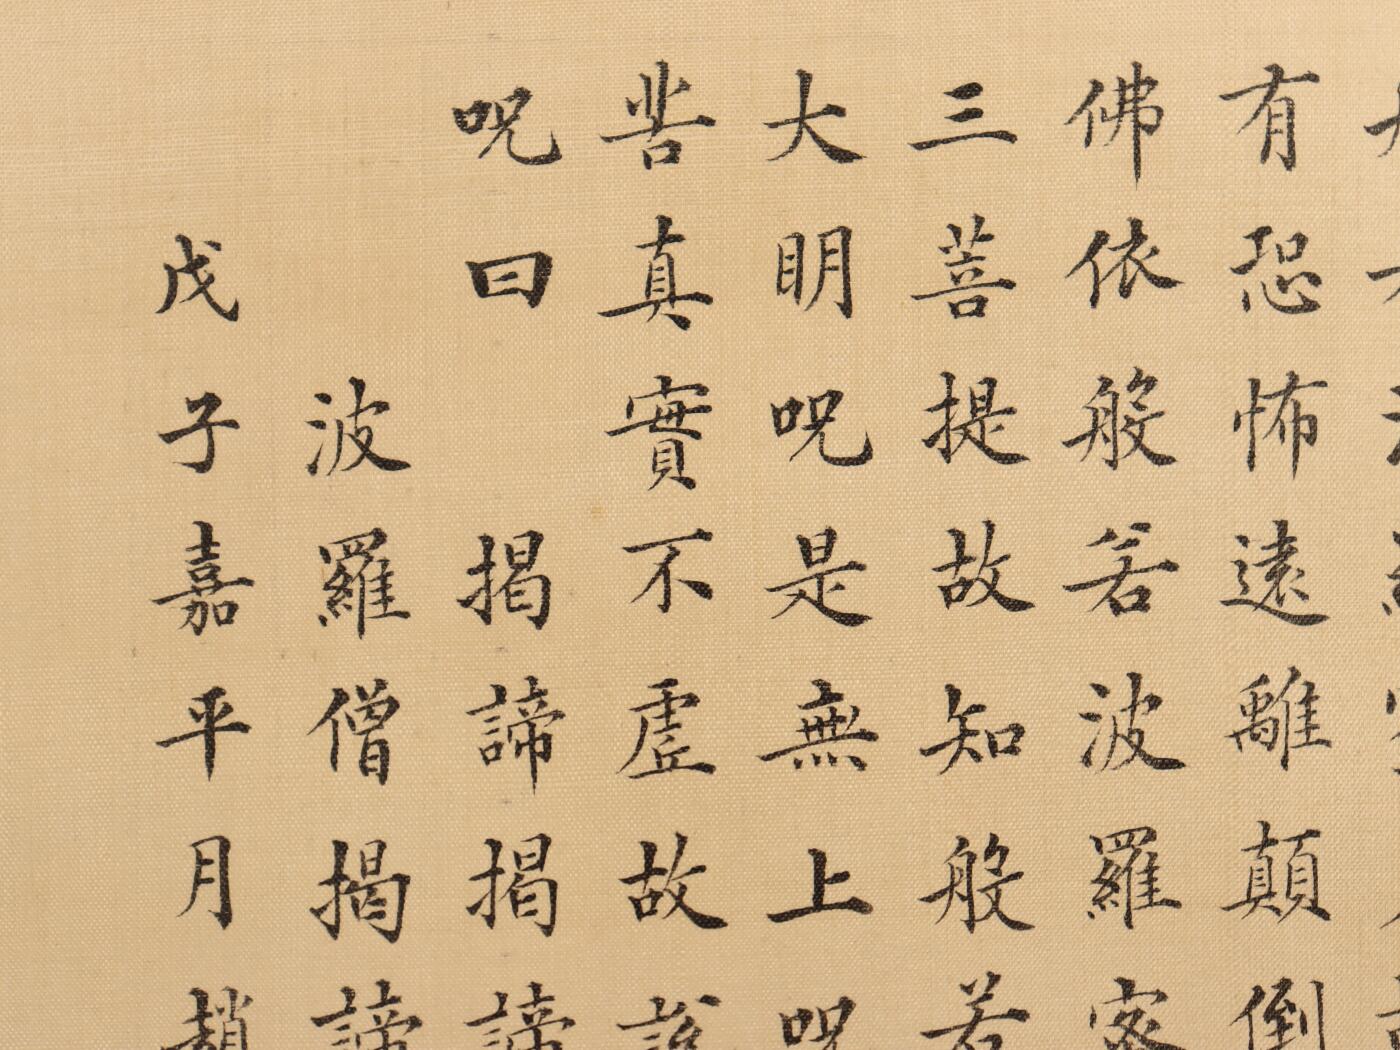 有恐怖遠離顛倒
佛依般若波羅密
三菩提故知般若
大明呪是無上呪
昔真實不虛故說
呪曰 揭諦揭諦
波羅僧揭諦
戊子嘉平月趙